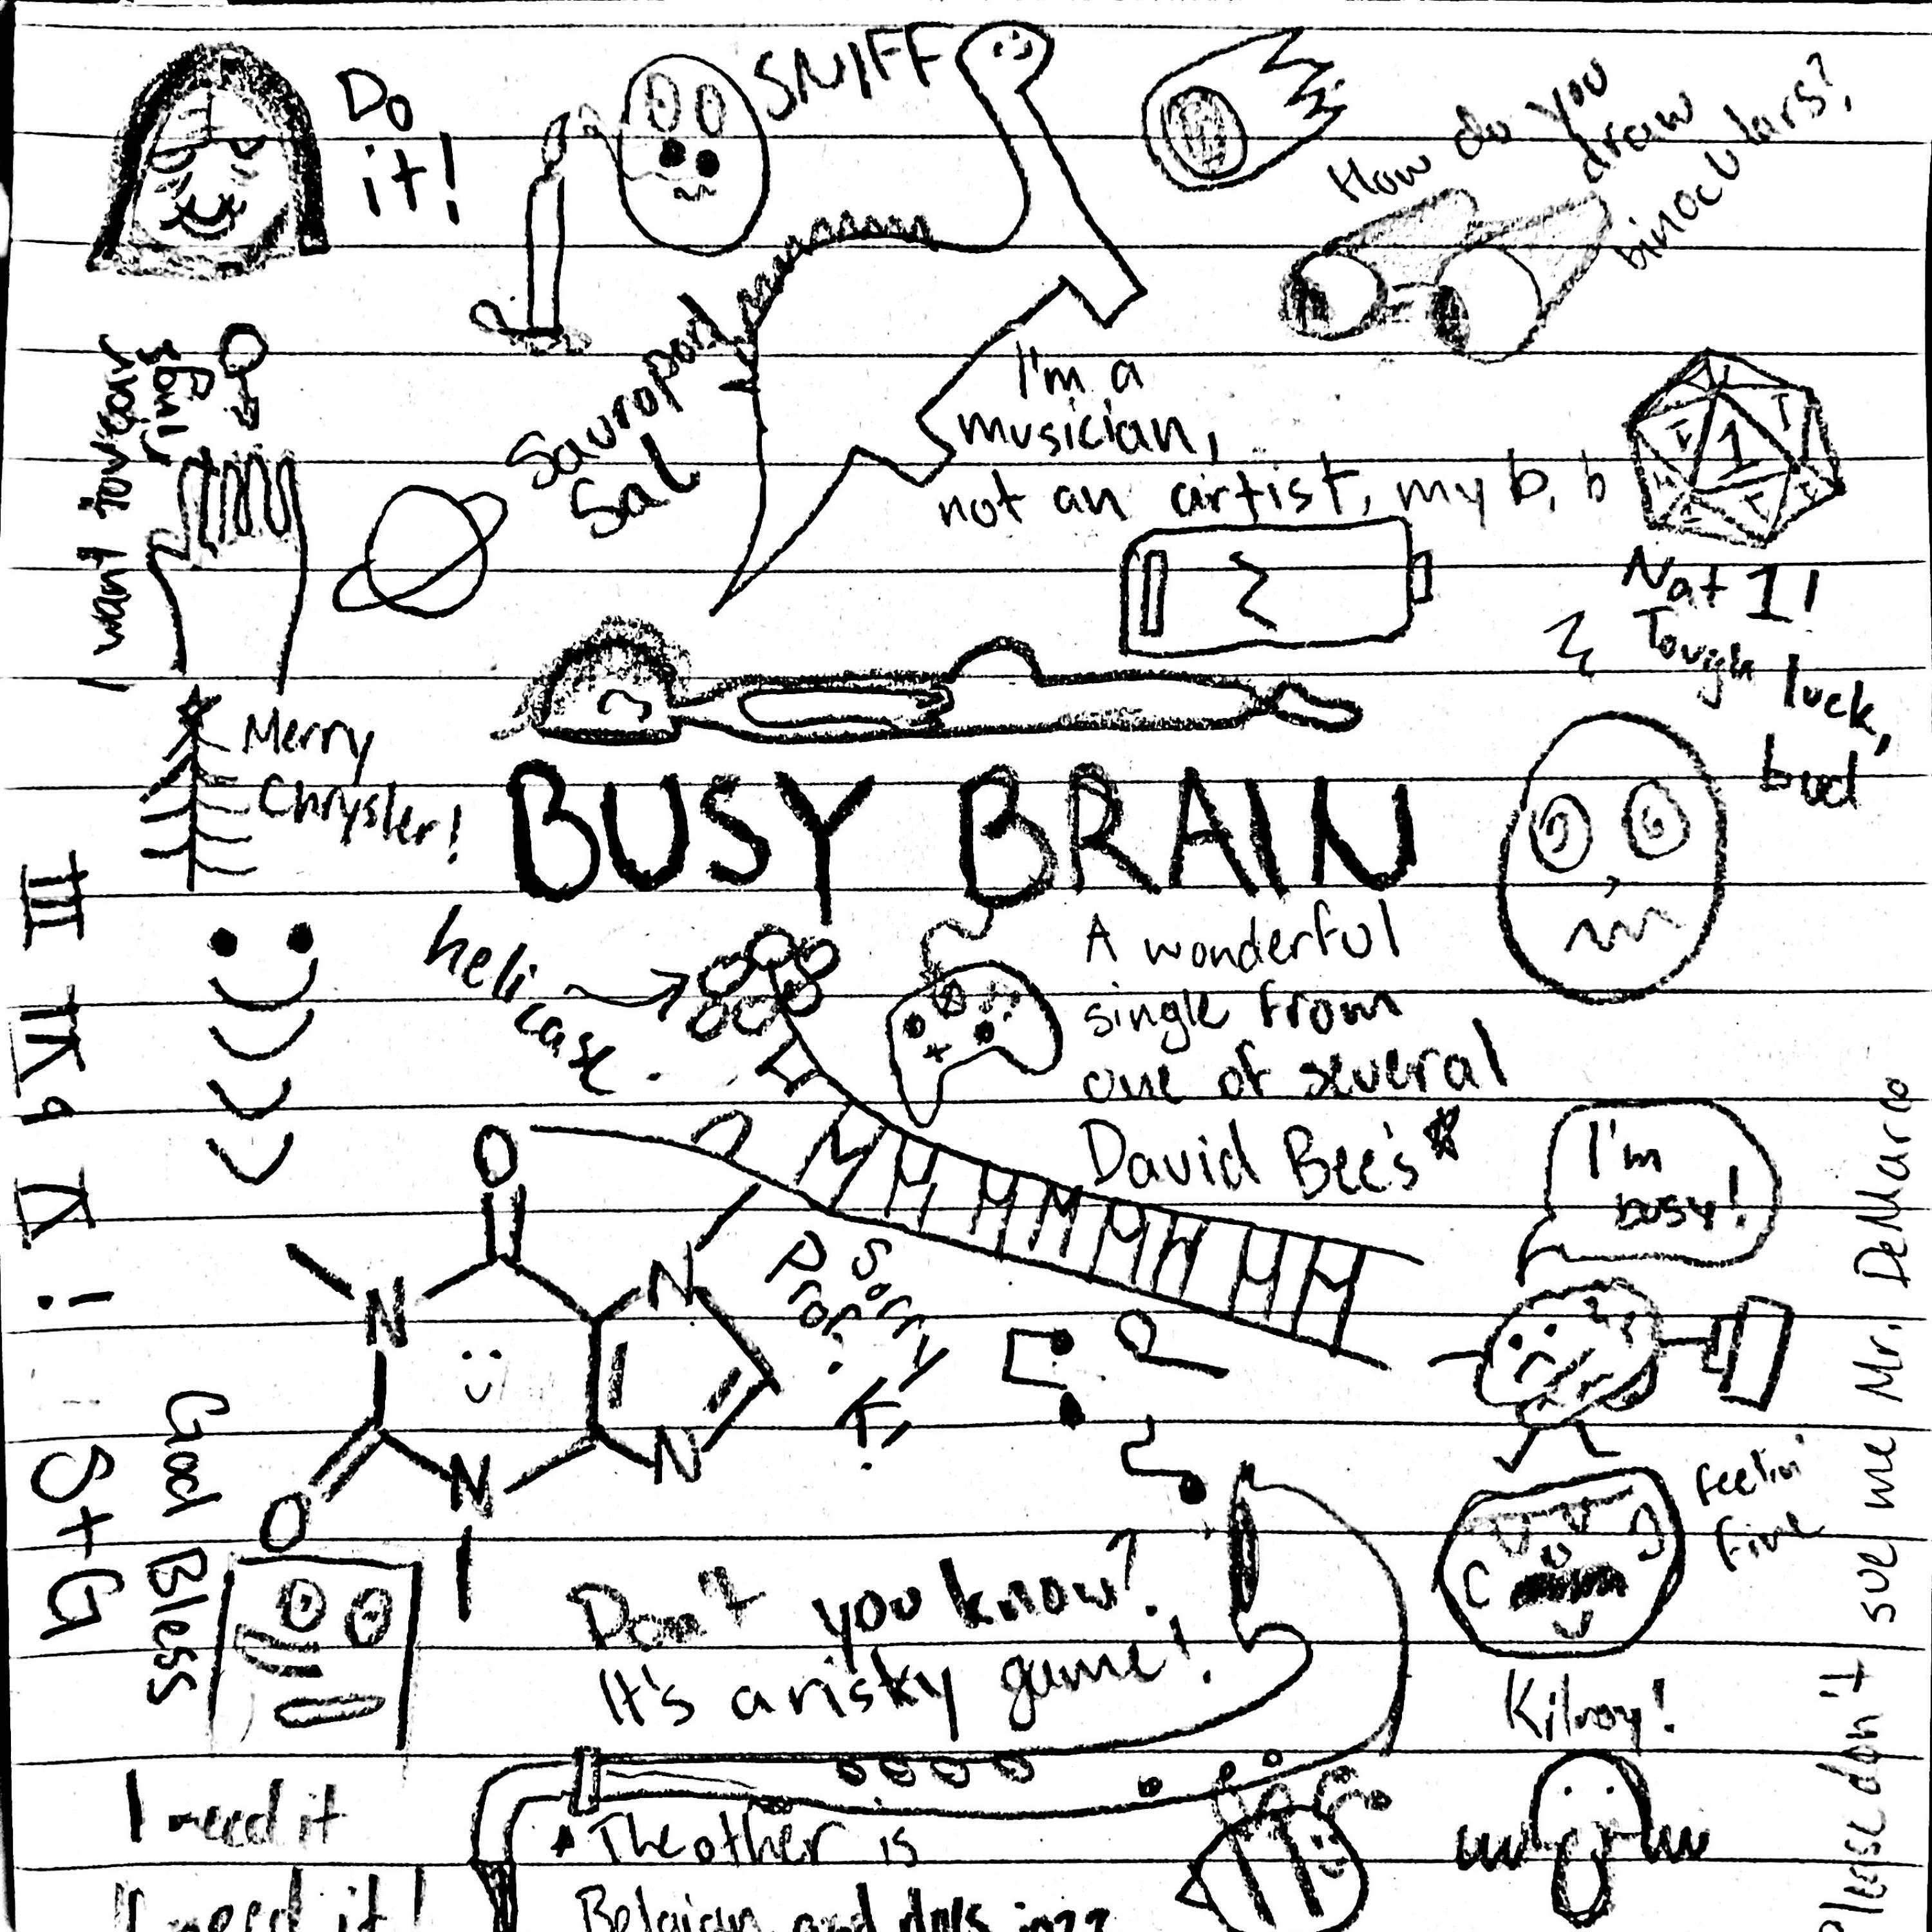 Do
it!
SNIFF
How do you
draw
binoculars?
I want toucan
Sauropod
Sal
I'm a
musician,
not an artist, my b, b
1
Nat 1!
Tough luck,
bud
Merry
Chrysler!
BUSY BRAIN
helicase
A wonderful
single from
one of several
David Bee's*
III
I'm
busy!
O
N
N
N
N
O
Sorry
Prof.
K.
God Bless
S+G
Feelin'
fine
Don't you know?
It's a risky game!
Kilroy!
Please don't sue me Mr. DeMarco
I need it
I need it!
* The other is
Belgian and does jazz